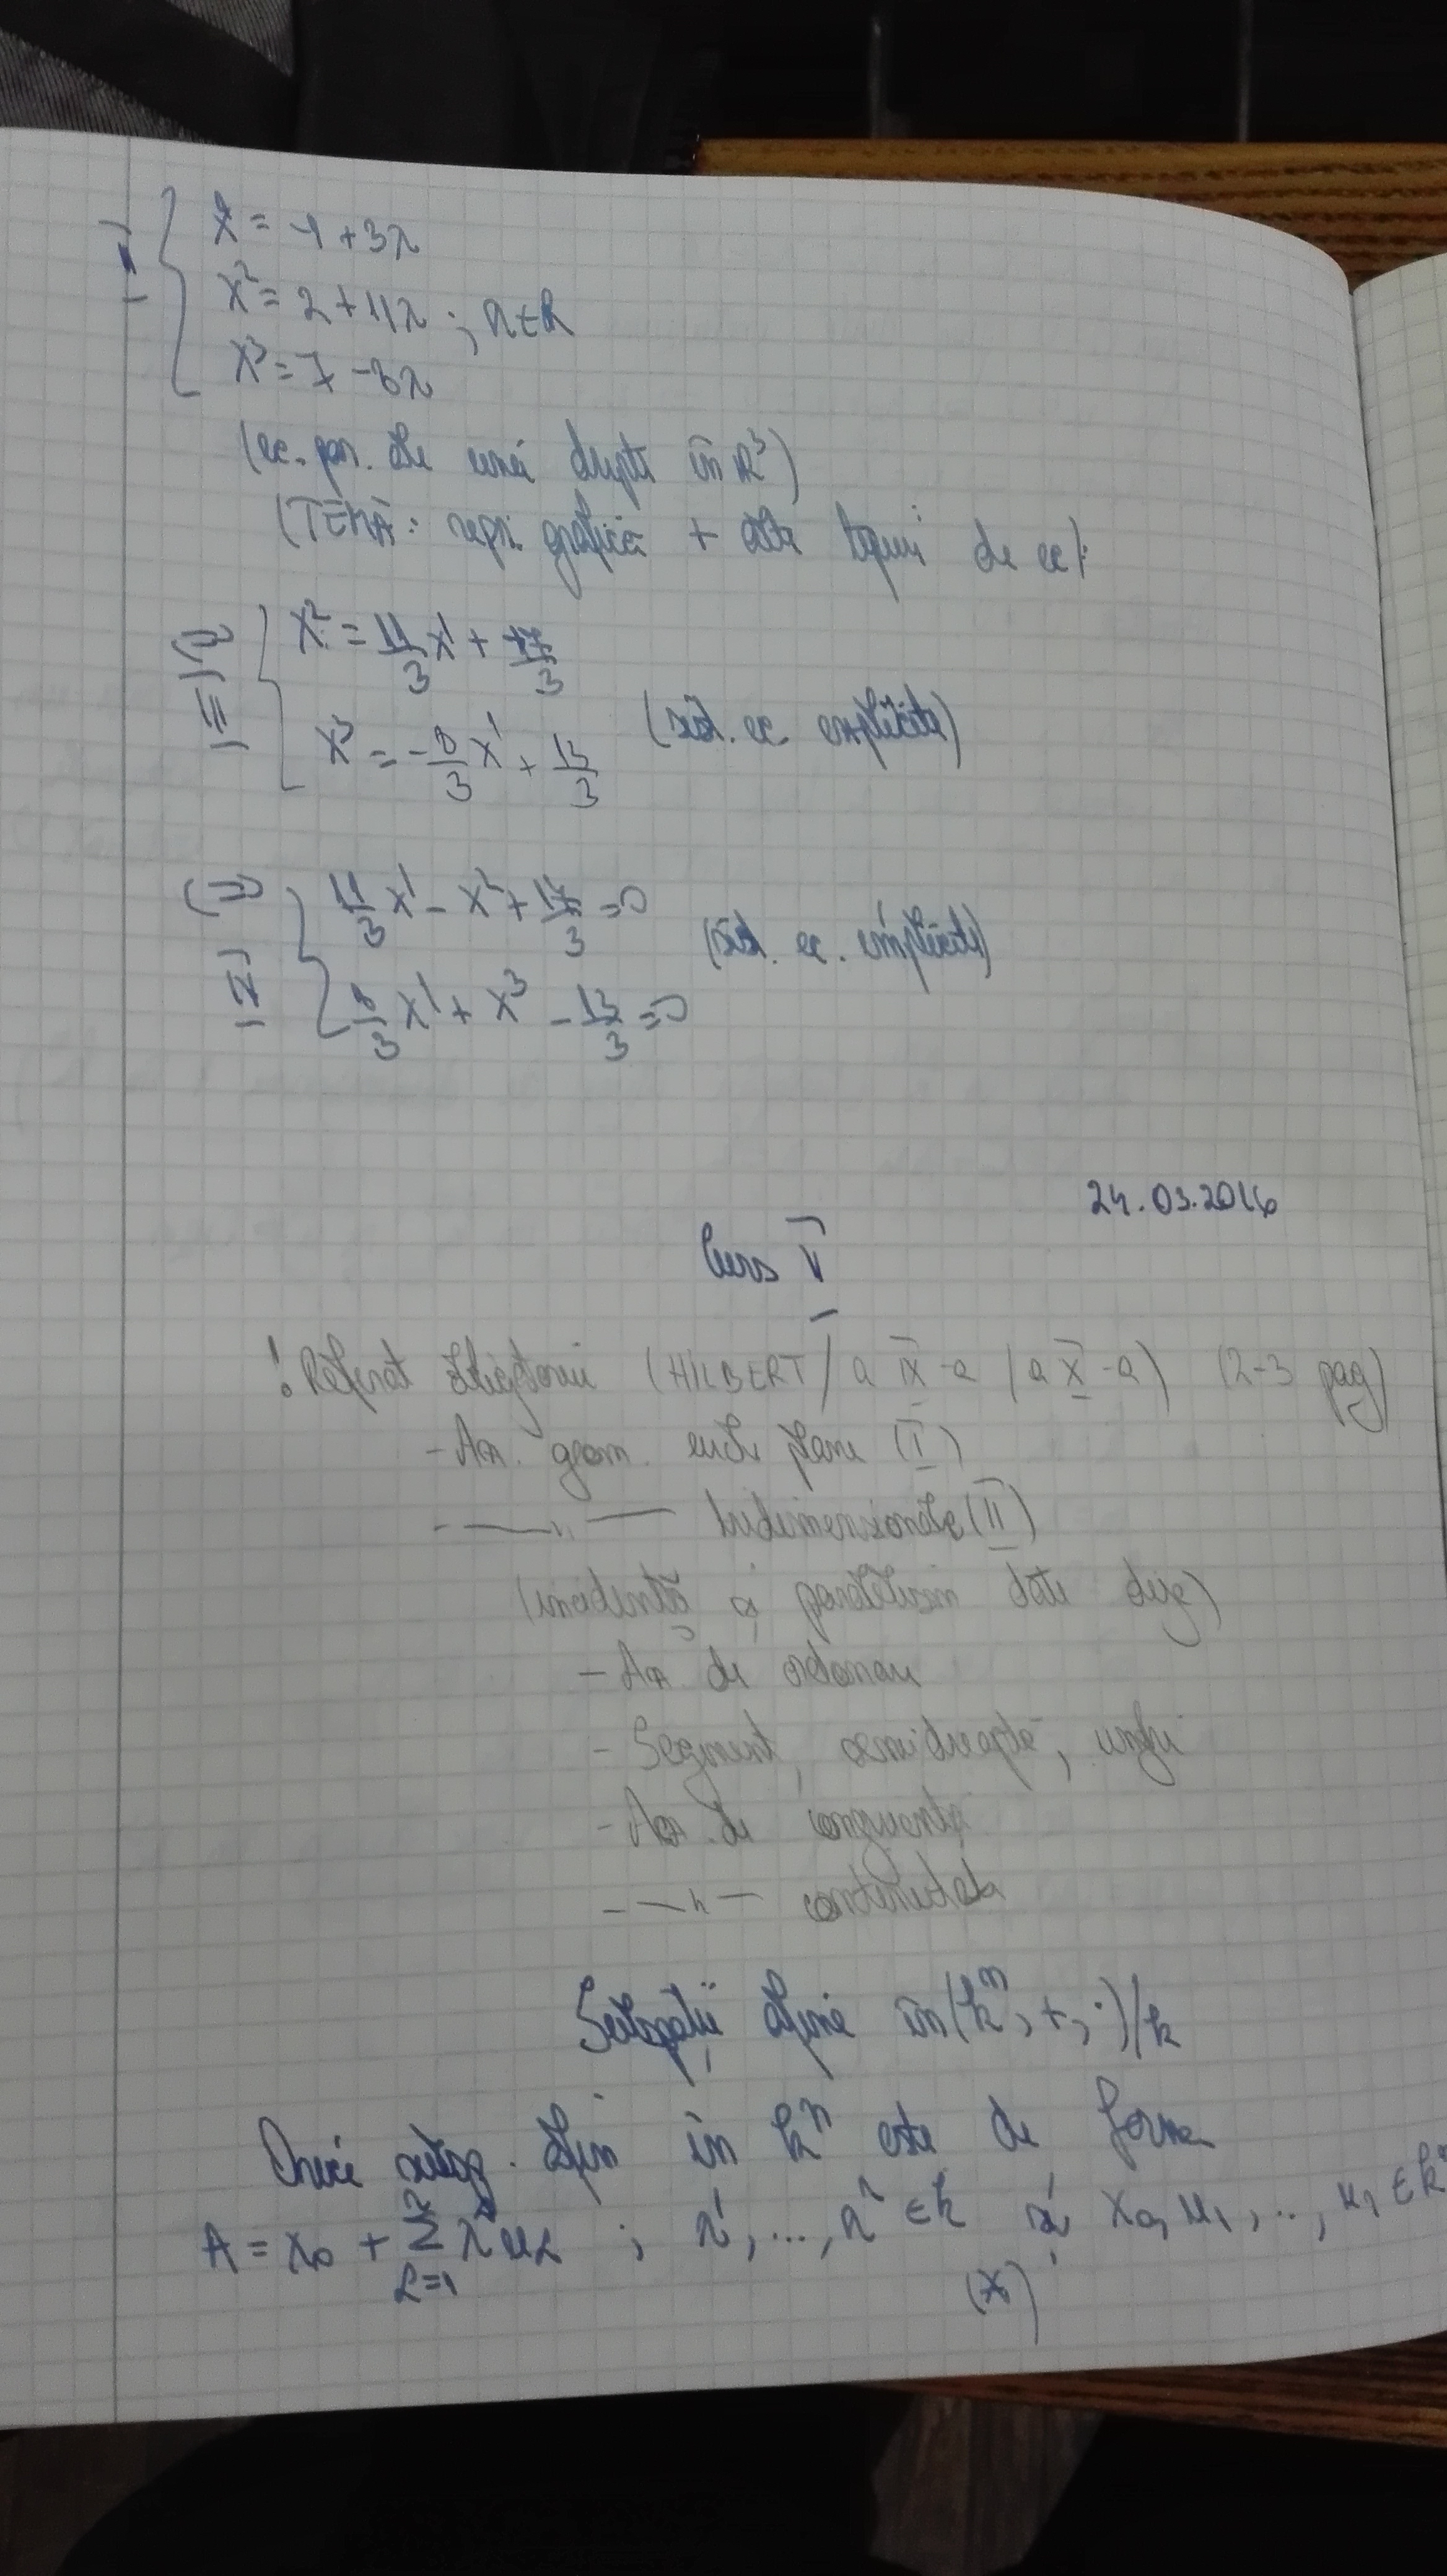 I { x¹ = -1 + 3λ
x² = 2 + 11λ ; λ ∈ R
x³ = 7 - 8λ
(ec. par. ale unei drepte în R³)
(TEMĂ: repr. grafică + alte tipuri de ec).
⟺ III { x² = 11/3 x¹ + 17/3
x³ = -8/3 x¹ + 13/3 (sist. ec. explicite)
⟺ IV { 11/3 x¹ - x² + 17/3 = 0
8/3 x¹ + x³ - 13/3 = 0 (sist. ec. implicite)
24.03.2016
Curs V
! Referat obligatoriu (HILBERT / a IX-a / a X-a) (2-3 pag)
- Ax. geom. eucl. plane (I)
- —"— tridimensionale (II)
(incidență și paralelism date deja)
- Ax. de ordonare
- Segment, semidreaptă, unghi
- Ax. de congruență
- —"— continuitate
Subspații afine în (kⁿ, +, ·)/k
Orice subsp. afin în kⁿ este de forma
A = x₀ + Σ λ^α u_α ; λ¹, ..., λʳ ∈ k și x₀, u₁, .., uᵣ ∈ kⁿ
α=1
(*)